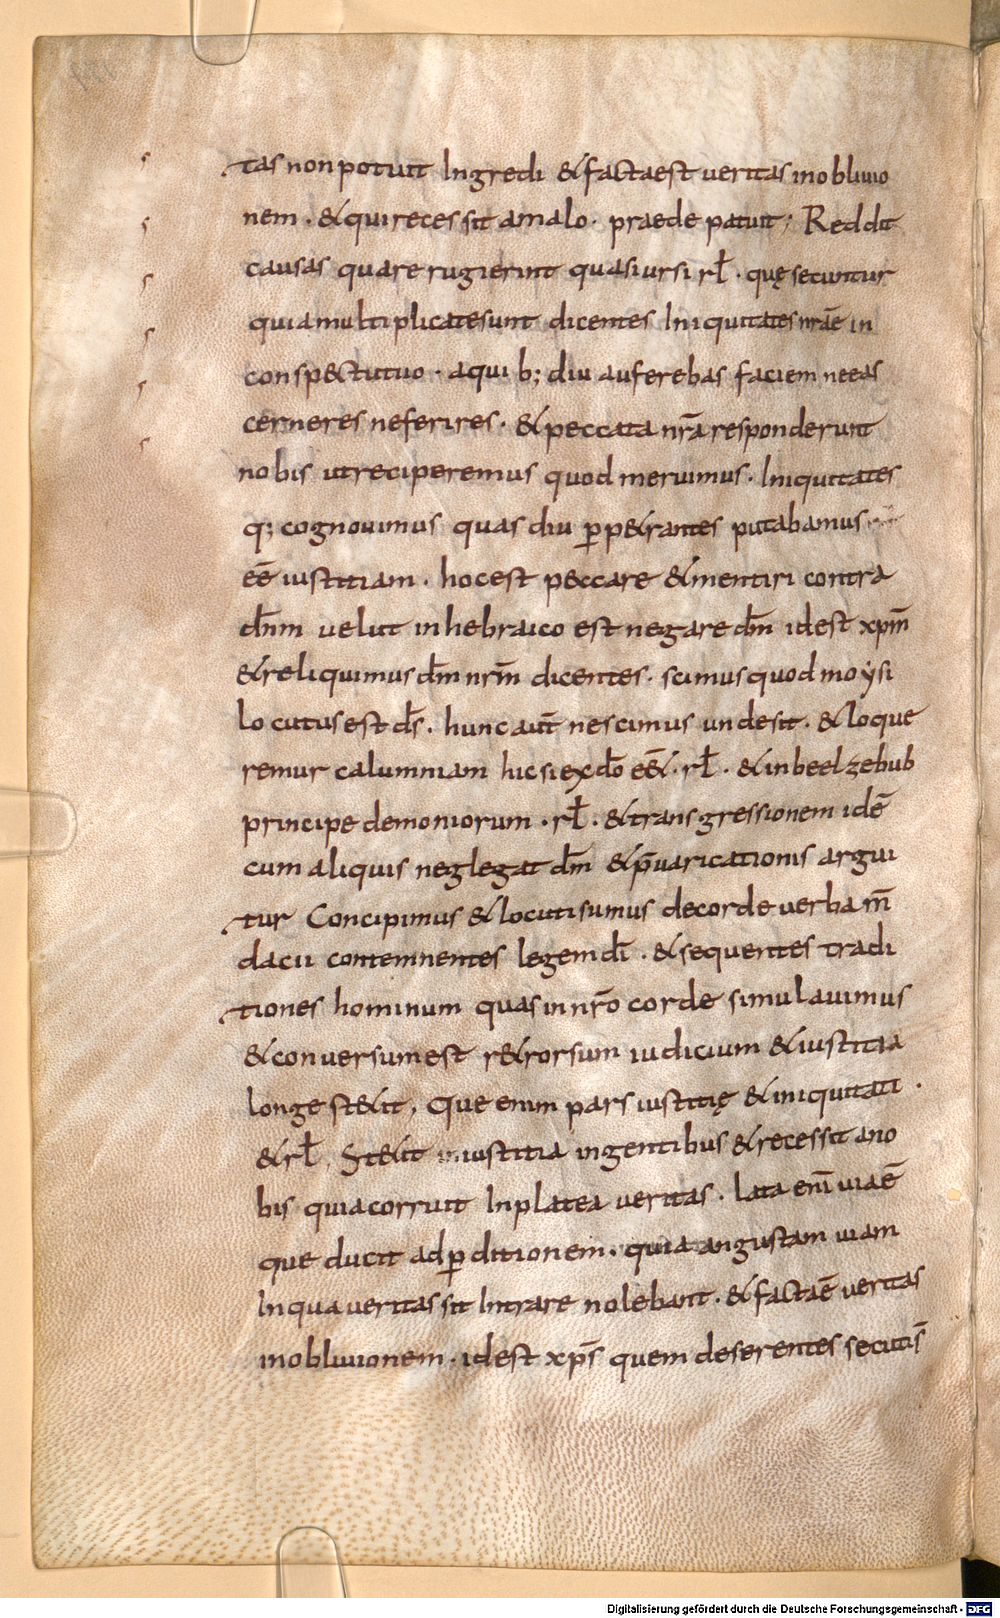 tas non potuit Ingredi & facta est veritas in oblivio
nem · & qui recessit a malo · praede patuit ; Reddit
causas quare rugierint quasi ursi rł · quę secuntur
quia multiplicate sunt dicentes Iniquitates nrāe in
conspectu tuo · a quib; diu auferebas faciem ne eas
cerneres ne ferires · & peccata nr̄a responderunt
nobis ut reciperemus quod meruimus · Iniquitates
q; cognovimus quas diu ꝑp&rantes putabamus
eē iustitiam · hoc est peccare & mentiri contra
dn̄m velut in hebraico est negare dm̄ id est xpm̄
& reliquimus dm̄ nrm̄ dicentes · scimus quod moysi
locutus est ds̄ · hunc aut̄ nescimus unde sit · & loque
remur calumniam hic si ex dō eē& · rł · & in beelzebub
principe demoniorum · rł · & transgressionem idē
cum aliquis neglegat dm̄ & p̄varicationis argui
tur Concipimus & locuti sumus de corde verba m̄
dacii contemnentes legem dī · & sequentes tradi
tiones hominum quas in nr̄o corde simulavimus
& conversum est r&rorsum iudicium & iustitia
longe st&it, Que enim pars iustitię & iniquitati ·
& rł . St&it iustitia in gentibus & recessit a no
bis quia corruit In platea veritas · lata enī via ē
que ducit ad ꝑditionem · quia angustam viam
In qua veritas sit Intrare nolebant · & facta ē veritas
in oblivionem · id est xps̄ quem deserentes secuti s̄
Digitalisierung gefördert durch die Deutsche Forschungsgemeinschaft - DFG